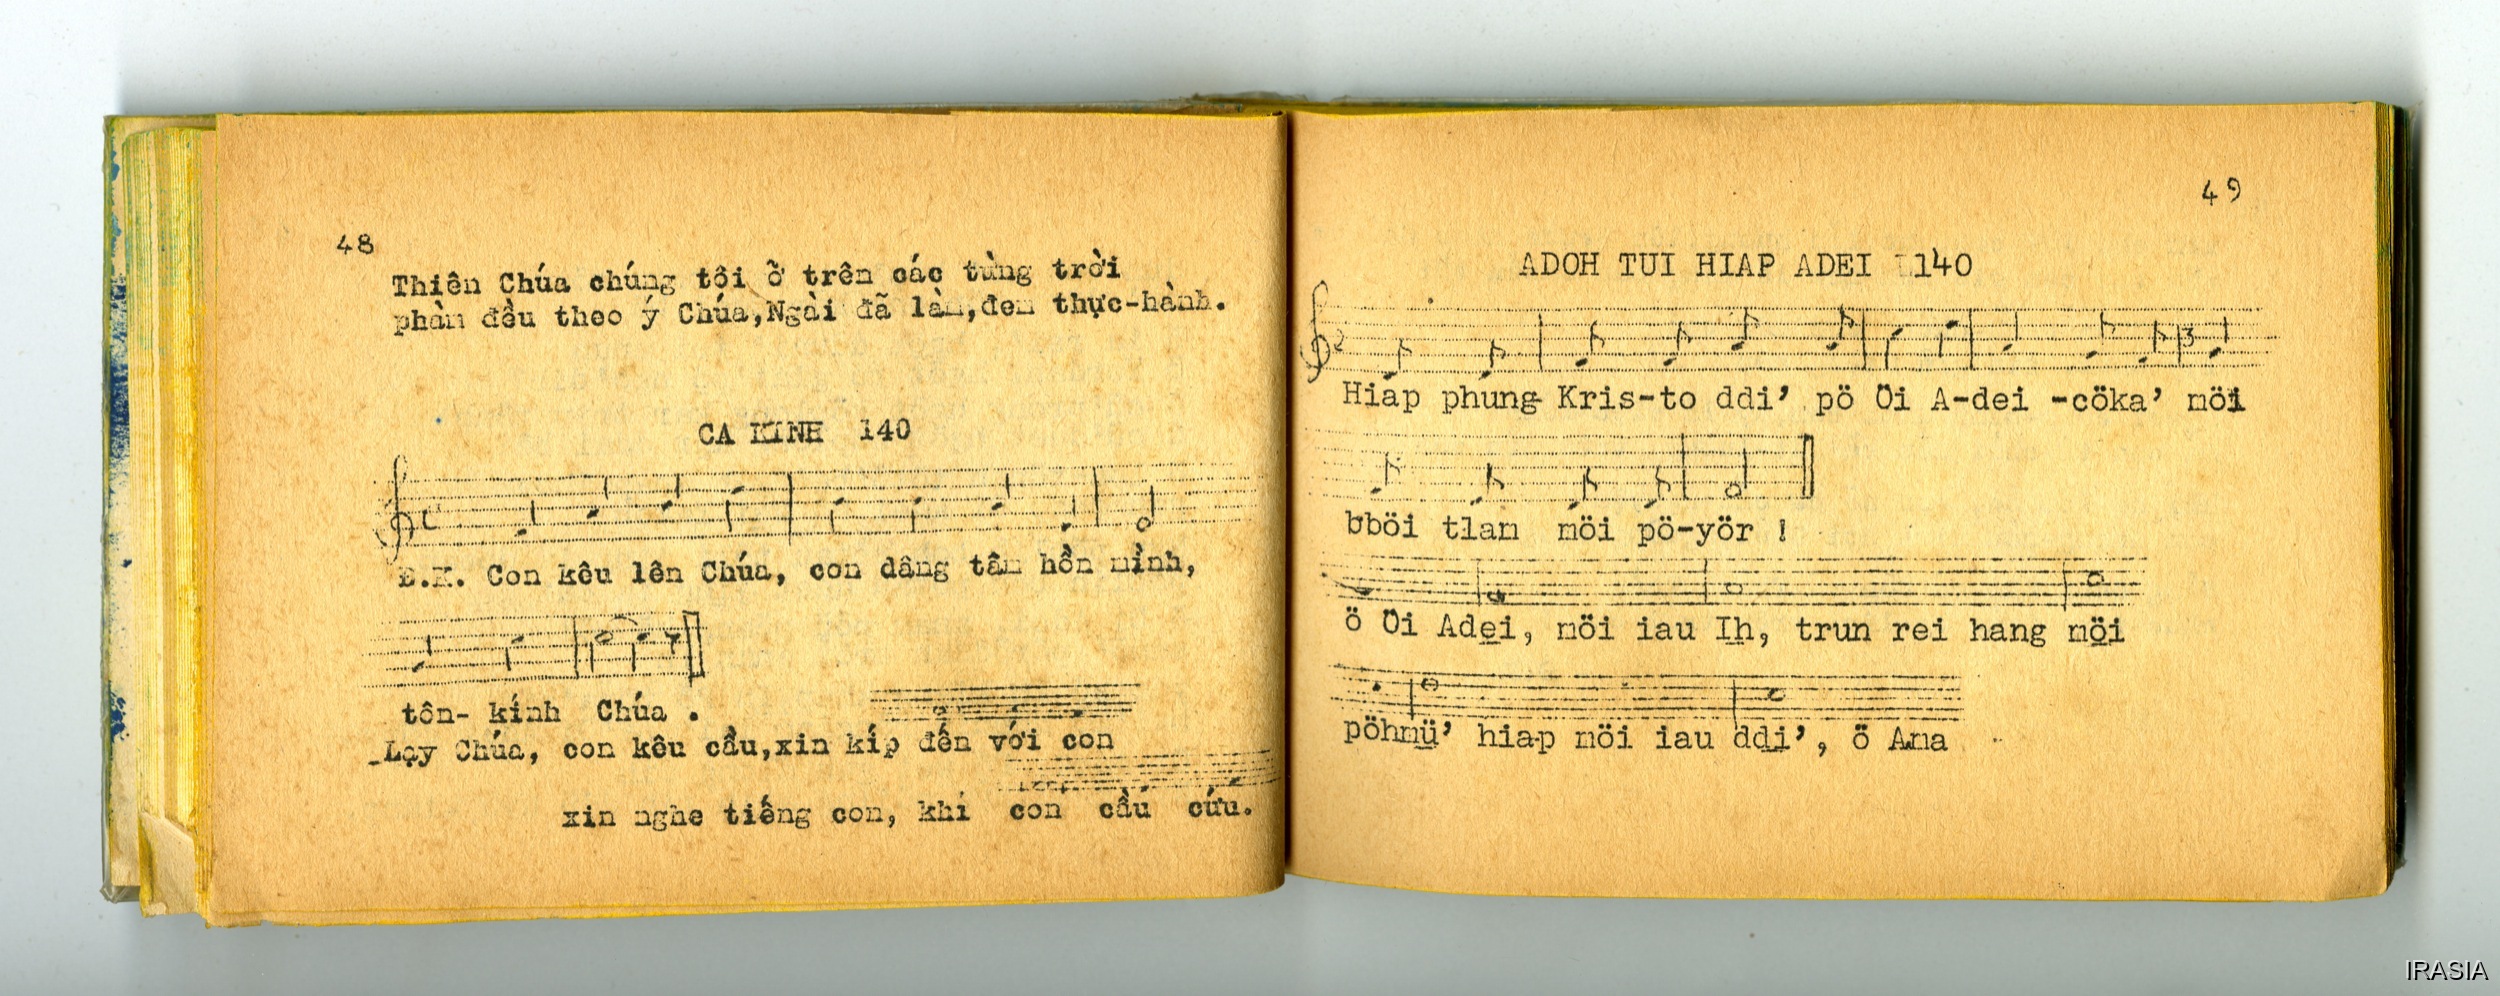 48
Thiên Chúa chúng tôi ở trên các từng trời
phàm đều theo ý Chúa,Ngài đã làm,đem thực-hành.
CA KINH 140
Đ.K. Con kêu lên Chúa, con dâng tâm hồn mình,
tôn- kính Chúa .
Lạy Chúa, con kêu cầu,xin kíp đến với con
xin nghe tiếng con, khi con cầu cứu.
49
ADOH TUI HIAP ADEI 140
3
Hiap phung- Kris-to ddi’ pö Öi A-dei -cöka’ möi
bböi tlam möi pö-yör !
ö Öi Adei, möi iau Ih, trun rei hang möi
pöhmü’ hiap möi iau ddi’, ö Ama
IRASIA